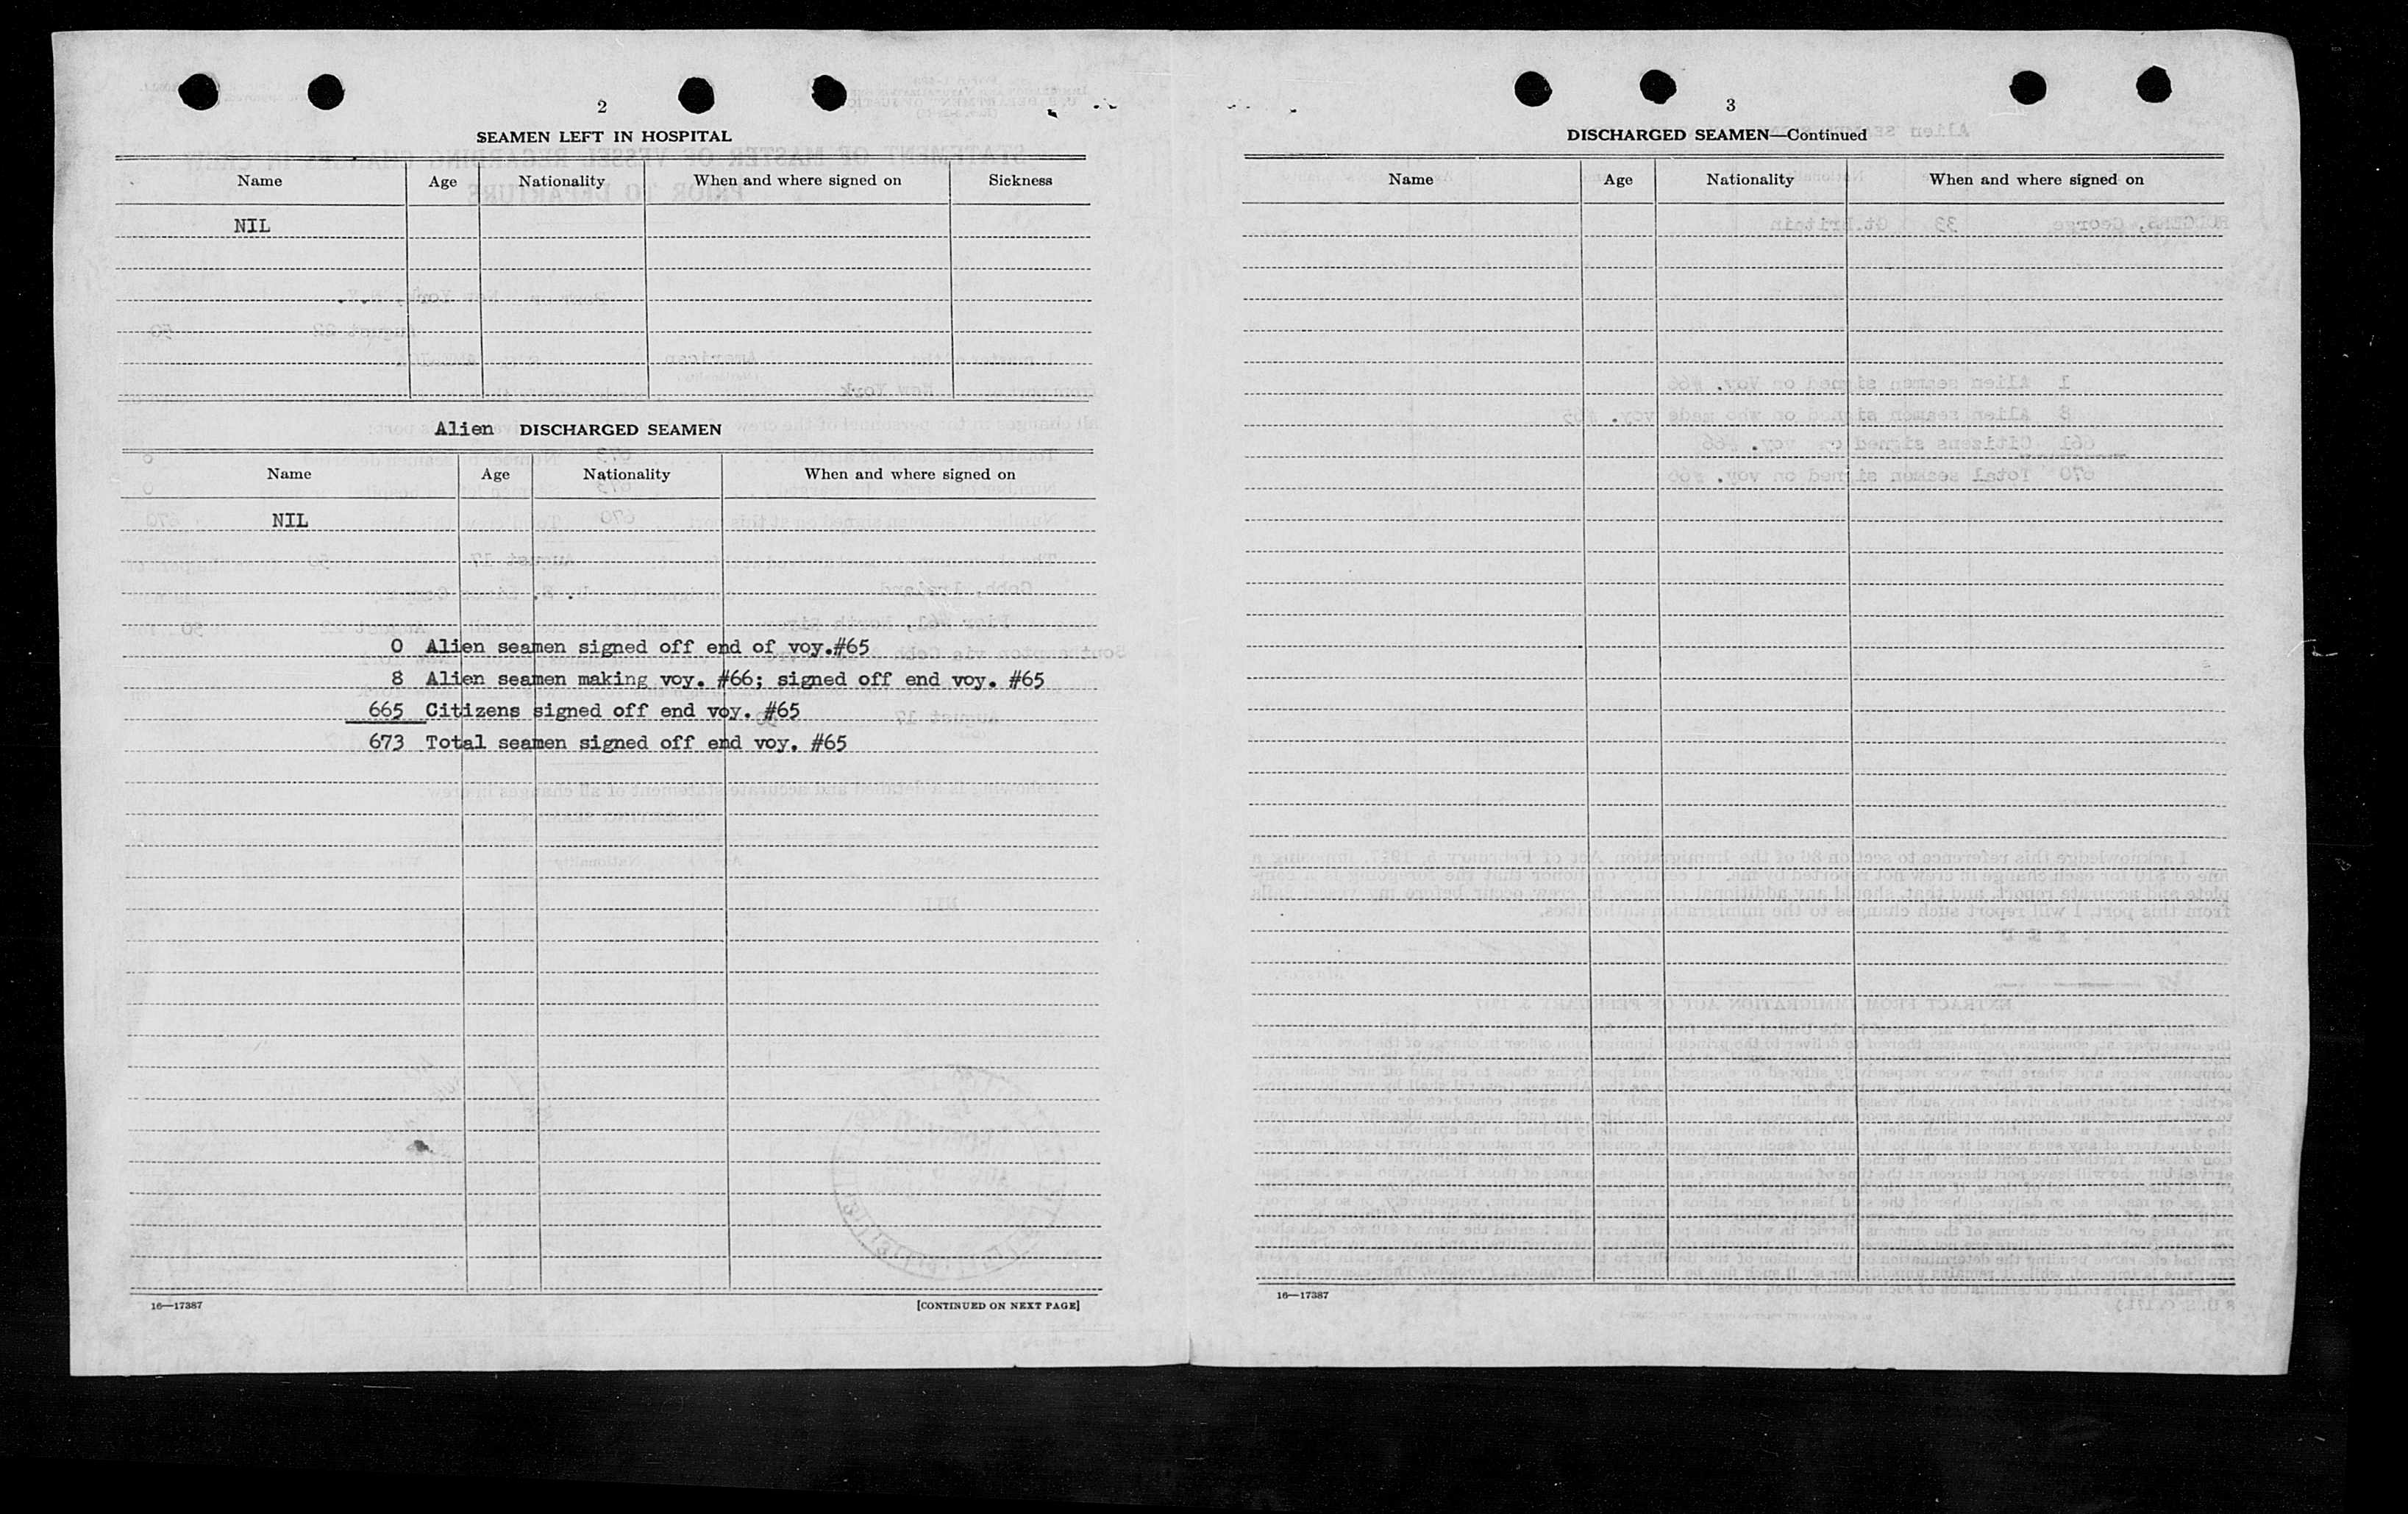 2
SEAMEN LEFT IN HOSPITAL
Name Age Nationality When and where signed on Sickness
NIL
Alien DISCHARGED SEAMEN
Name Age Nationality When and where signed on
NIL
0 Alien seamen signed off end of voy.#65
8 Alien seamen making voy. #66; signed off end voy. #65
665 Citizens signed off end voy. #65
673 Total seamen signed off end voy. #65
16—17387 [CONTINUED ON NEXT PAGE]
3
DISCHARGED SEAMEN—Continued
Name Age Nationality When and where signed on
16—17387